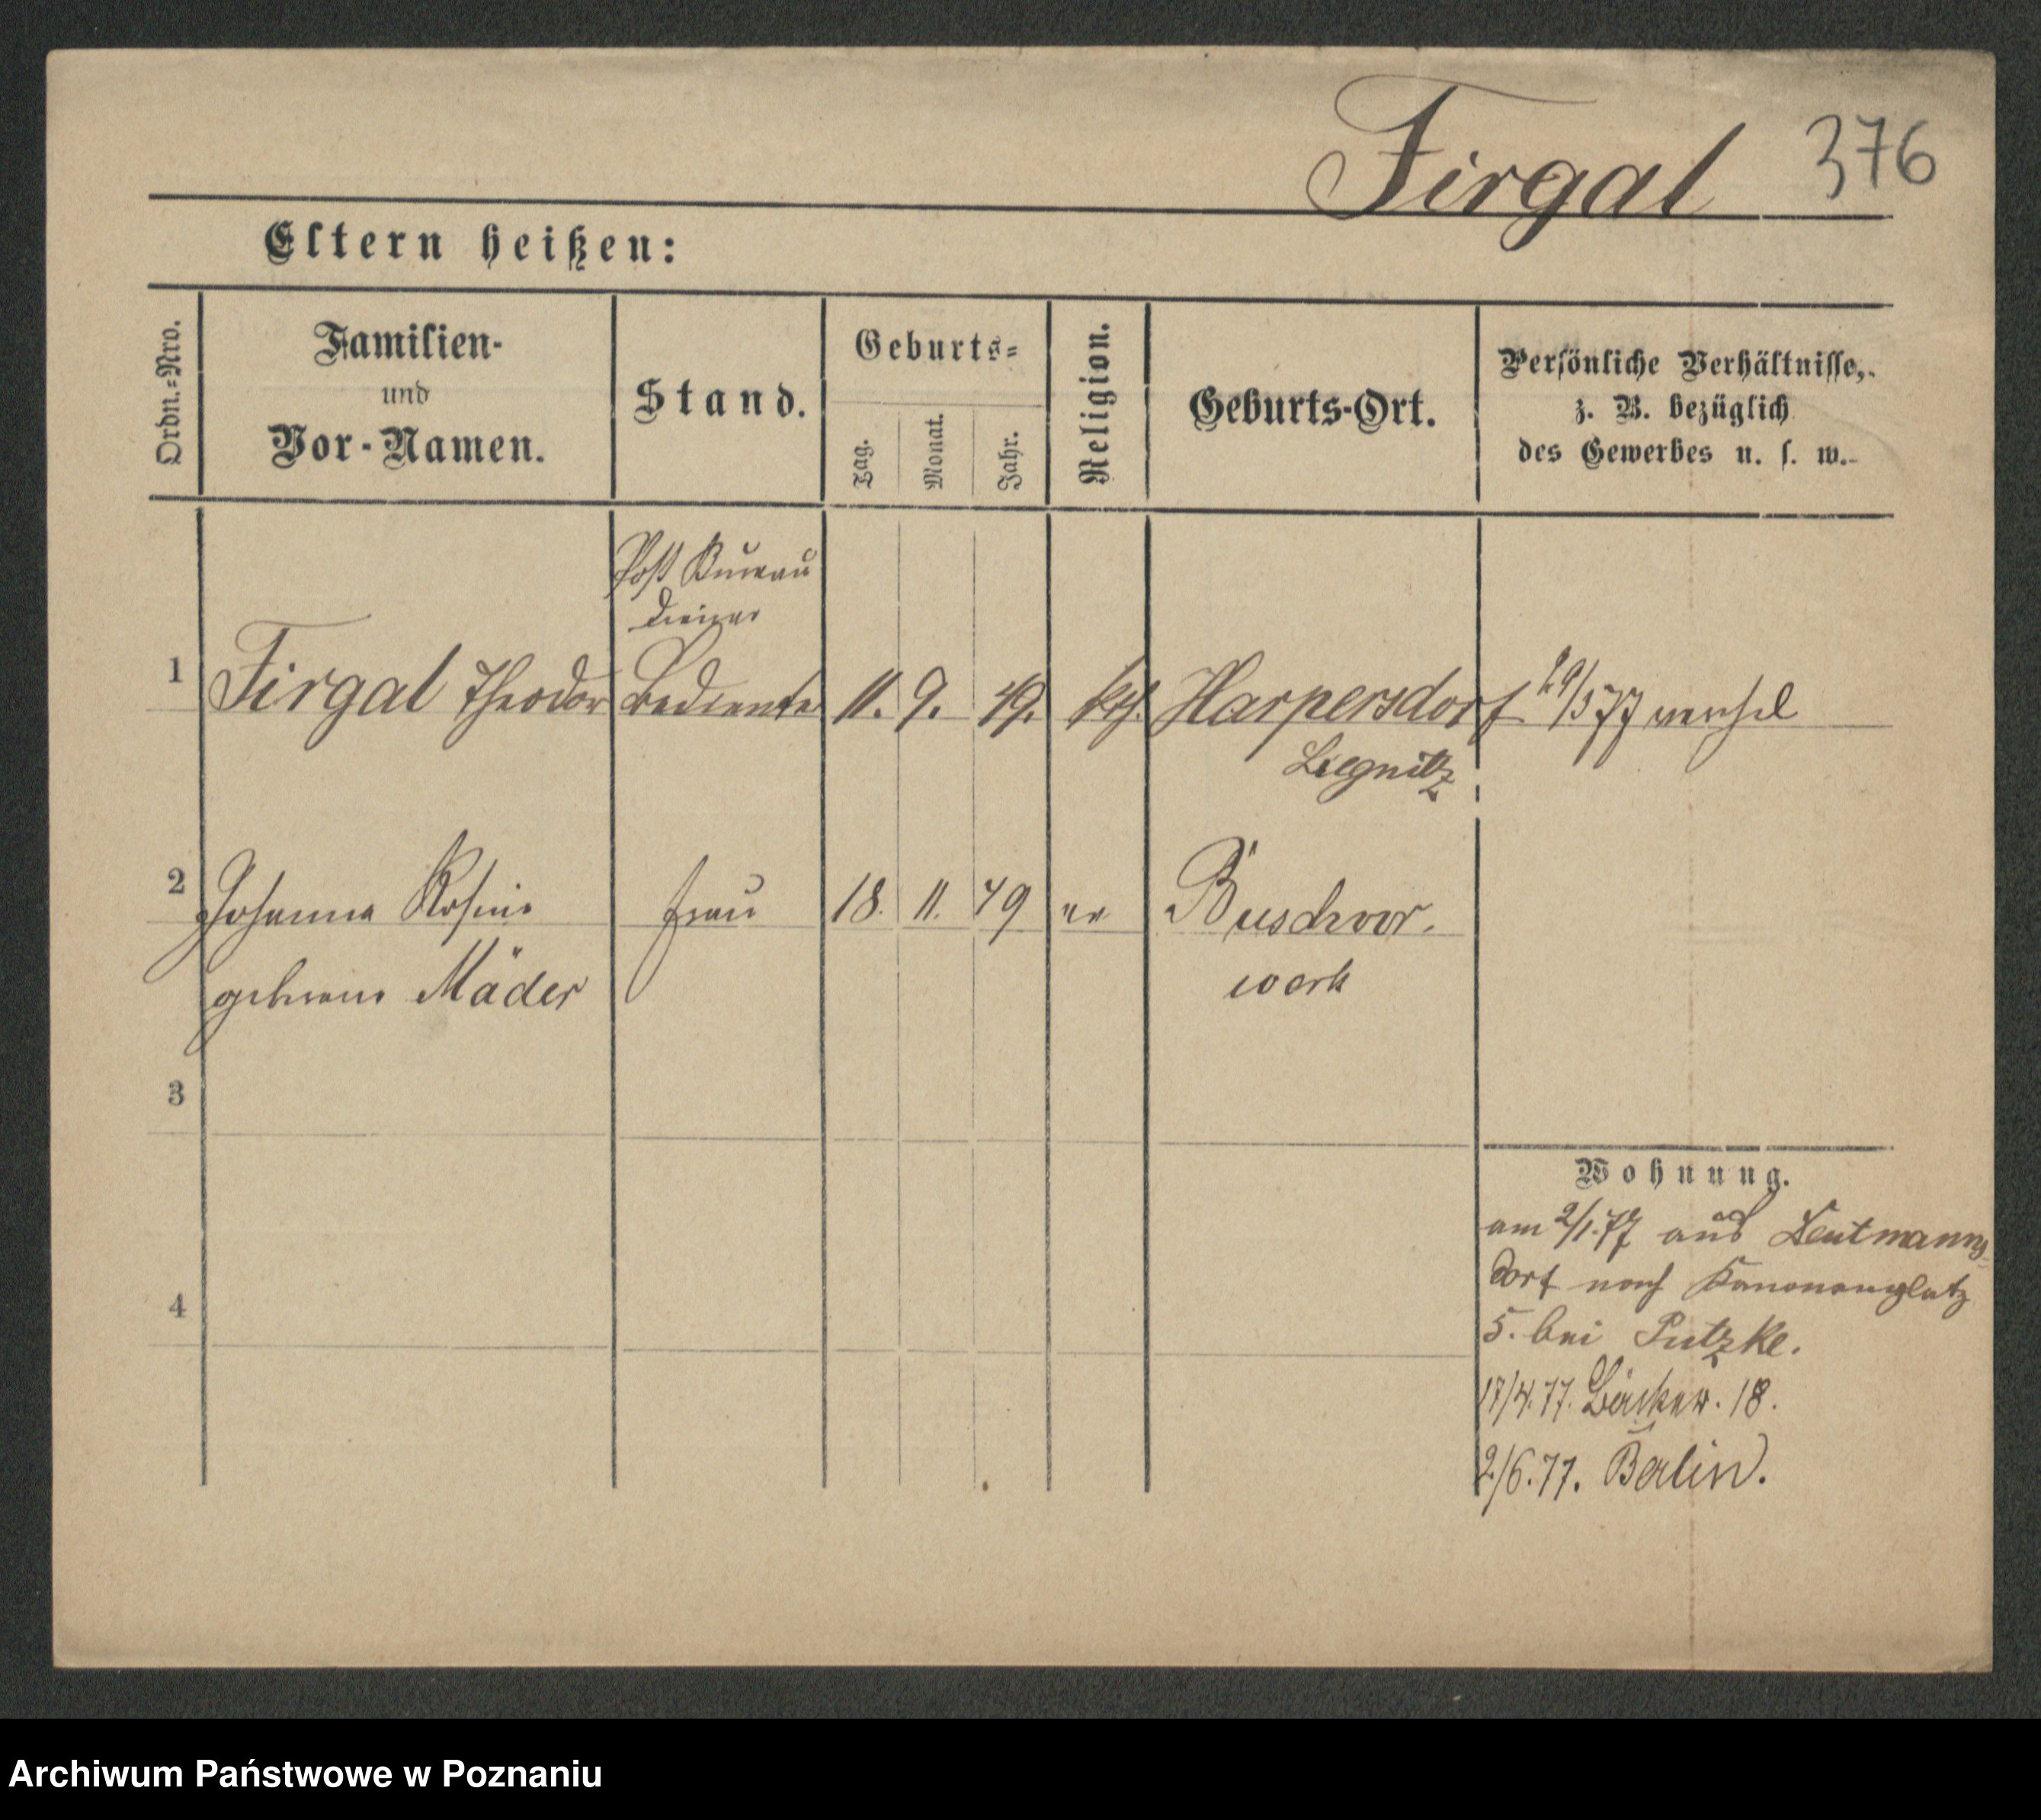 Firgal 376
Eltern heißen:
Ordn.-Nro.
Familien-
und
Vor-Namen.
Stand.
Geburts-
Tag.
Monat.
Jahr.
Religion.
Geburts-Ort.
Persönliche Verhältnisse,
z. B. bezüglich
des Gewerbes u. s. w.
Post Bureau
Diener
1 Firgal Theodor Bediente 11. 9. 49. kth. Harpersdorf 29/5 77
Liegnitz
2 Johanna Rosine Frau 18. 11. 49 ev Buschvor.
geborene Mäder werk
3
4
Wohnung.
am 2/1.77 aus Leutmanns-
dorf nach Kanonenplatz
5. bei Putzke.
17/4.77. 18.
2/6.77. Berlin.
Archiwum Państwowe w Poznaniu